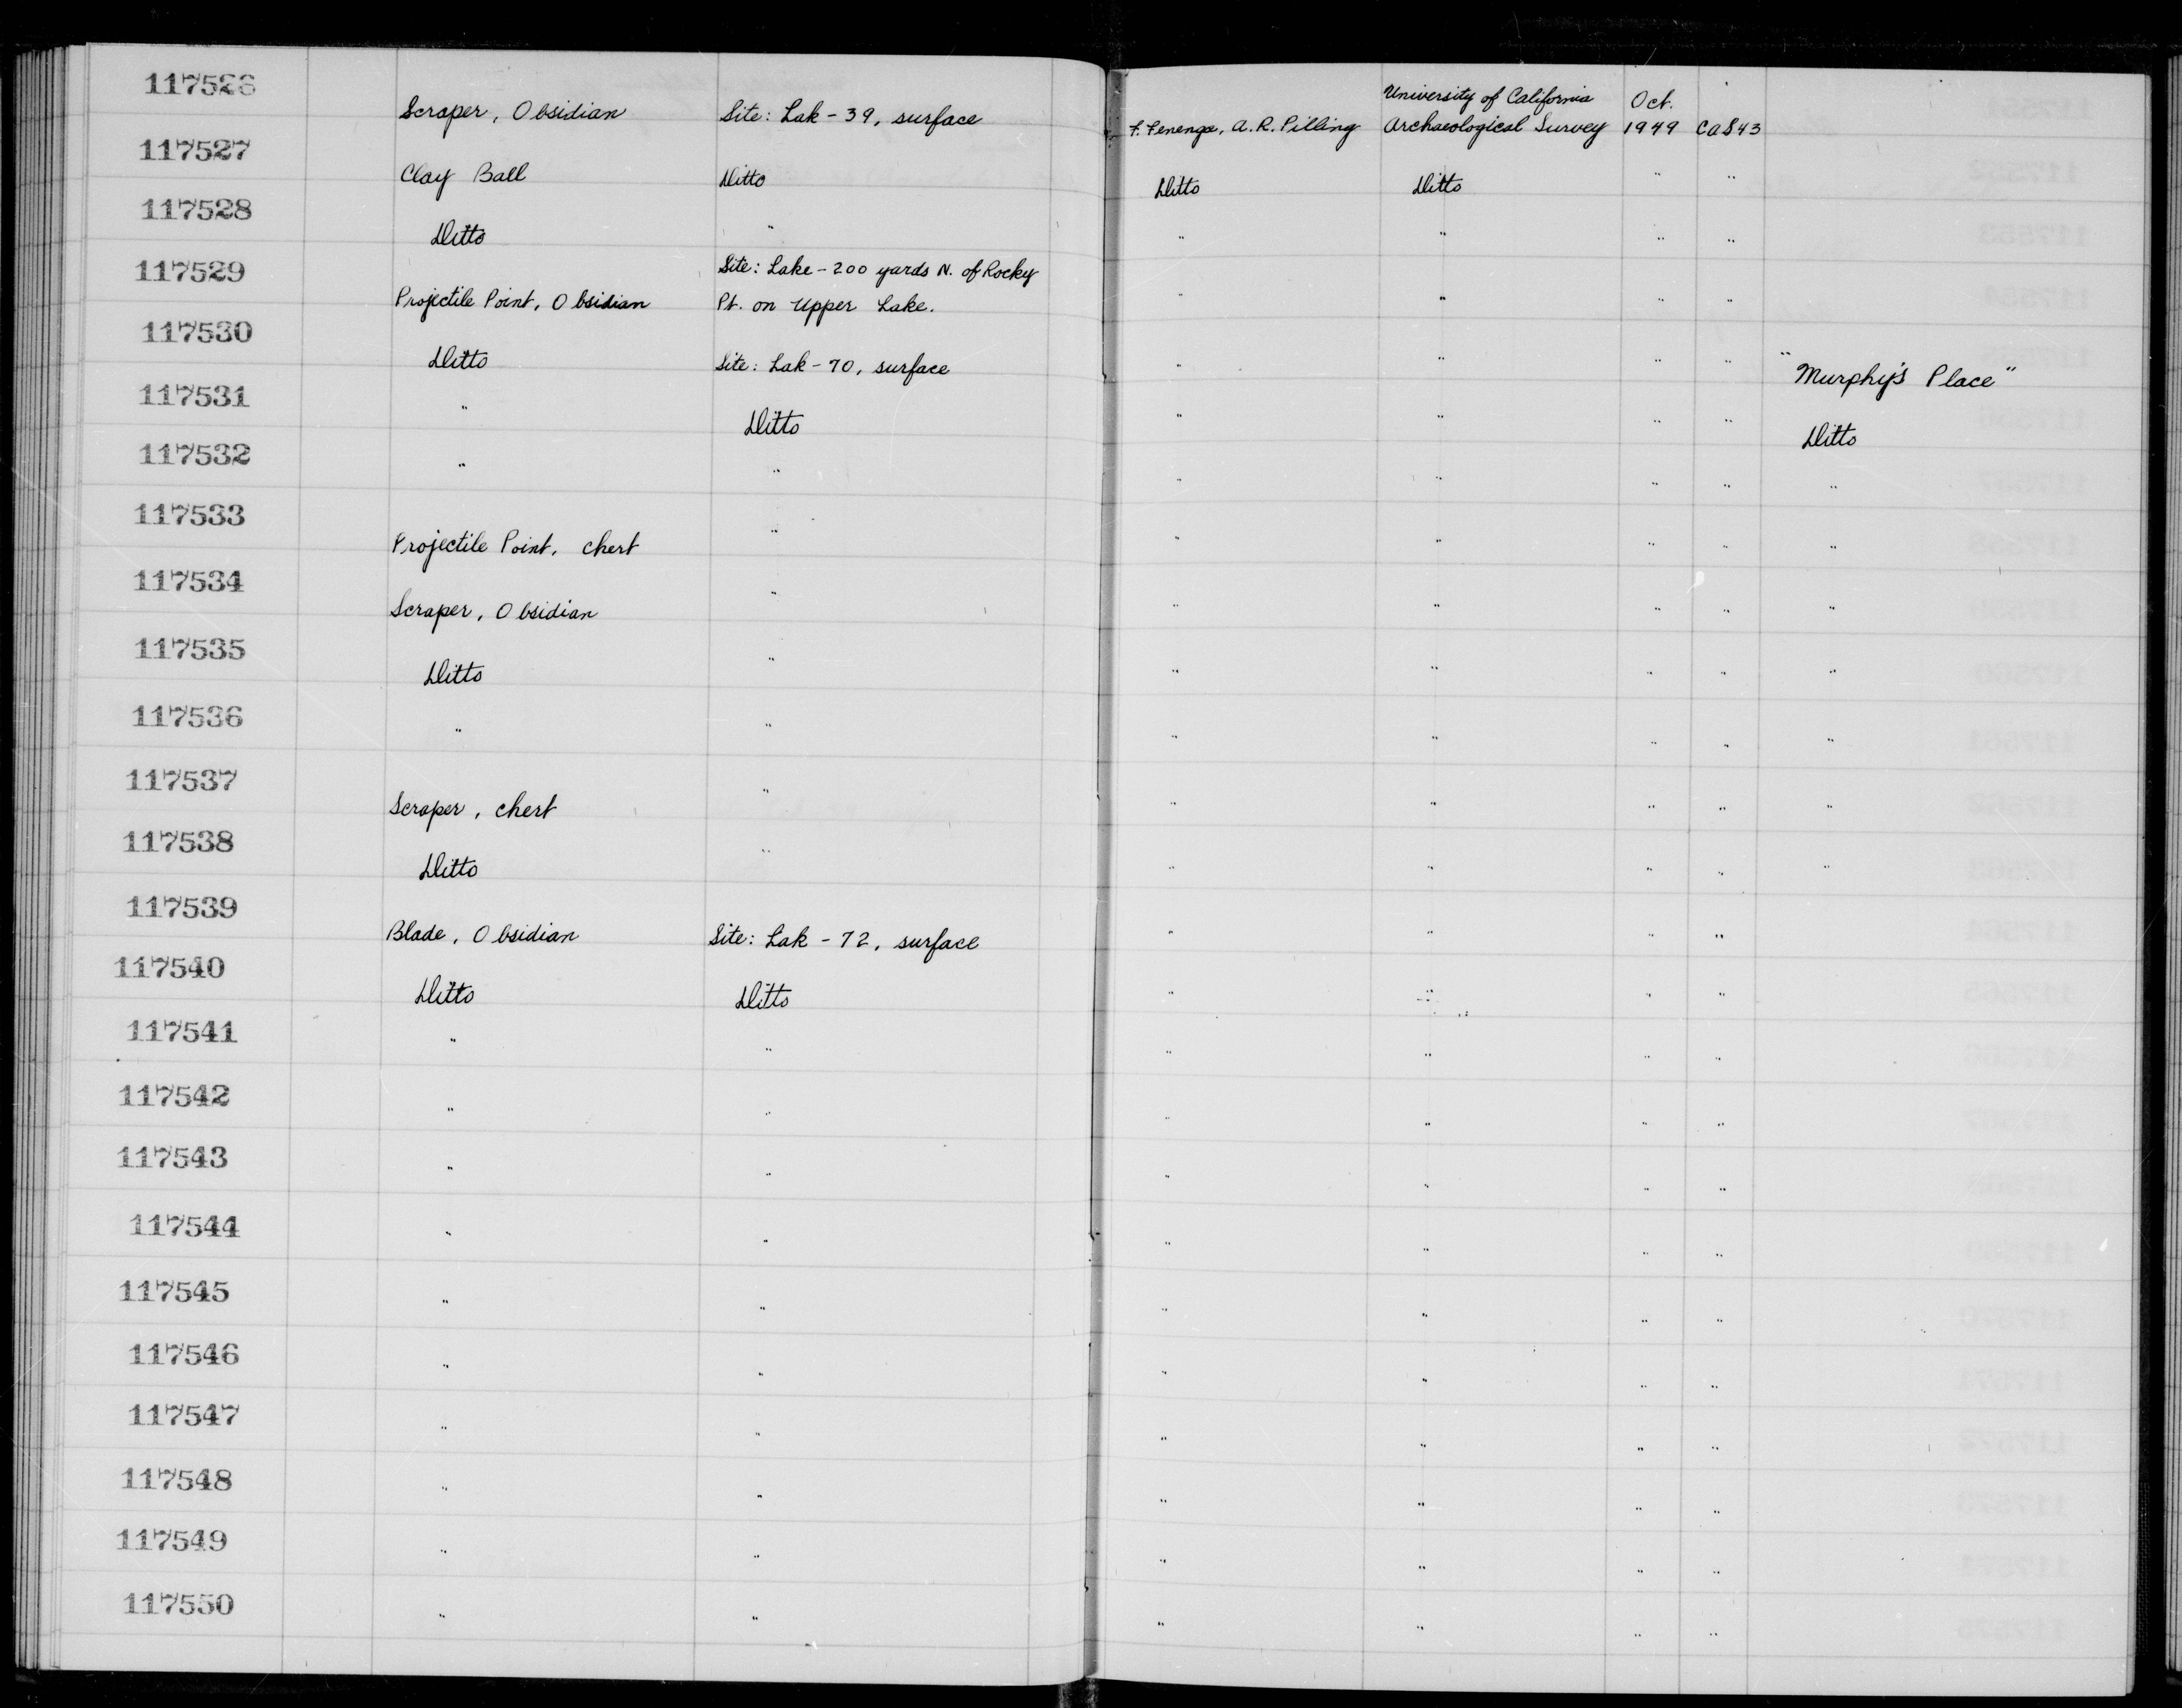 117526 Scraper, Obsidian Site: Lak-39, surface F. Fenenga, A.R. Pilling University of California Archaeological Survey Oct. 1949 CAS43
117527 Clay Ball Ditto Ditto Ditto " "
117528 Ditto " " " " "
117529 Projectile Point, Obsidian Site: Lake-200 yards N. of Rocky Pt. on Upper Lake. " " " "
117530 Ditto Site: Lak-70, surface " " " " "Murphy's Place"
117531 " Ditto " " " " Ditto
117532 " " " " " " "
117533 Projectile Point, chert " " " " " "
117534 Scraper, Obsidian " " " " " "
117535 Ditto " " " " " "
117536 " " " " " " "
117537 Scraper, chert " " " " " "
117538 Ditto " " " " " "
117539 Blade, Obsidian Site: Lak-72, surface " " " "
117540 Ditto Ditto " " " "
117541 " " " " " "
117542 " " " " " "
117543 " " " " " "
117544 " " " " " "
117545 " " " " " "
117546 " " " " " "
117547 " " " " " "
117548 " " " " " "
117549 " " " " " "
117550 " " " " " "